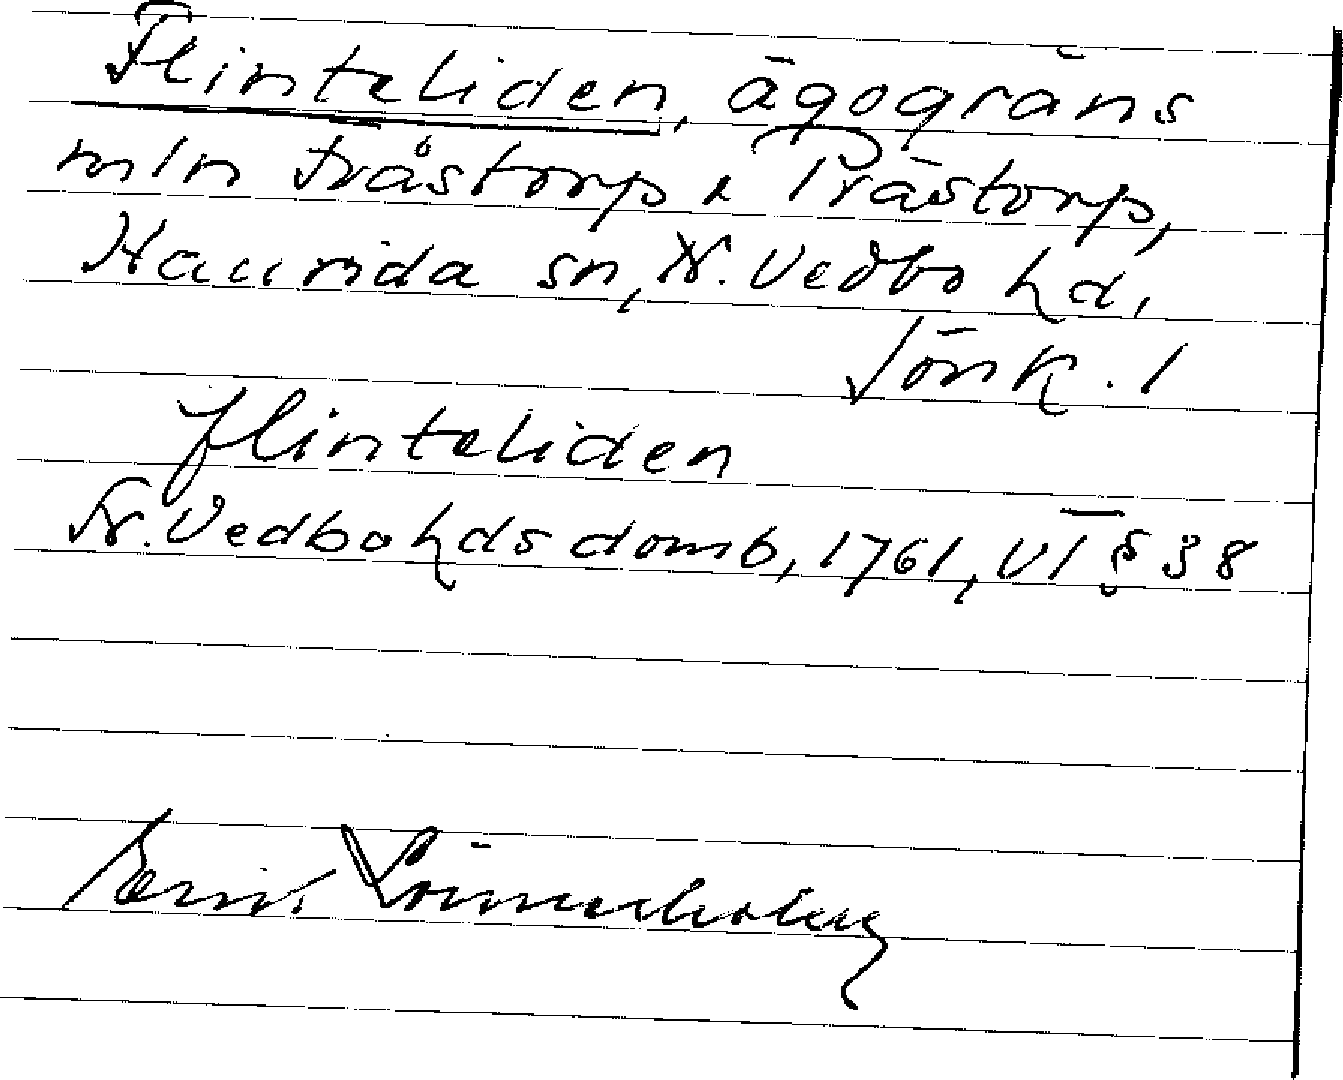 Flinteliden, ägogräns
mln Tråstorp o. Prästorp,
Haurida sn, N. Vedbo hd,
Jönk. l
flinteliden
N. Vedbo hds domb, 1761, VI § 38